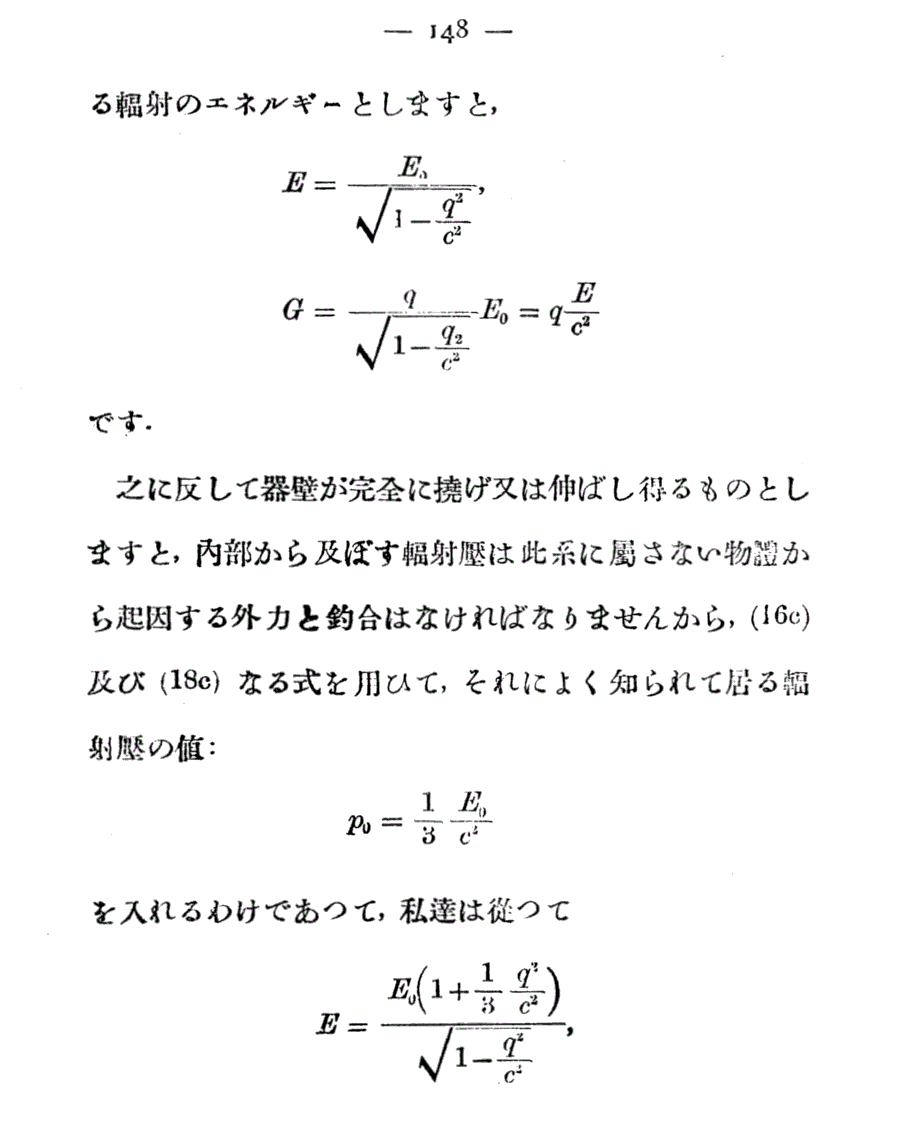 — 148 —
る輻射のエネルギーとしますと,
E = \frac{E_0}{\sqrt{1-\frac{q^2}{c^2}}},
G = \frac{q}{\sqrt{1-\frac{q_2}{c^2}}}E_0 = q\frac{E}{c^2}
です.
之に反して器壁が完全に撓げ又は伸ばし得るものとし
ますと, 內部から及ぼす輻射壓は此系に屬さない物體か
ら起因する外力と釣合はなければなりませんから, (16c)
及び (18c) なる式を用ひて, それによく知られて居る輻
射壓の値:
p_0 = \frac{1}{3} \frac{E_0}{c^2}
を入れるわけであつて, 私達は從つて
E = \frac{E_0\left(1+\frac{1}{3}\frac{q^2}{c^2}\right)}{\sqrt{1-\frac{q^2}{c^2}}},